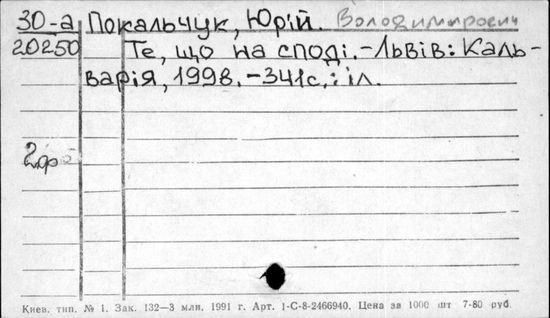 30-а Покальчук, Юрій. Володимирович
20250 Те, що на споді.-Львів: Каль-
варія, 1998.-341с.: іл.
Киев. тип. № 1. Зак. 132—3 млн. 1991 г. Арт. 1-С-8-2466940. Цена за 1000 шт 7-80 руб.